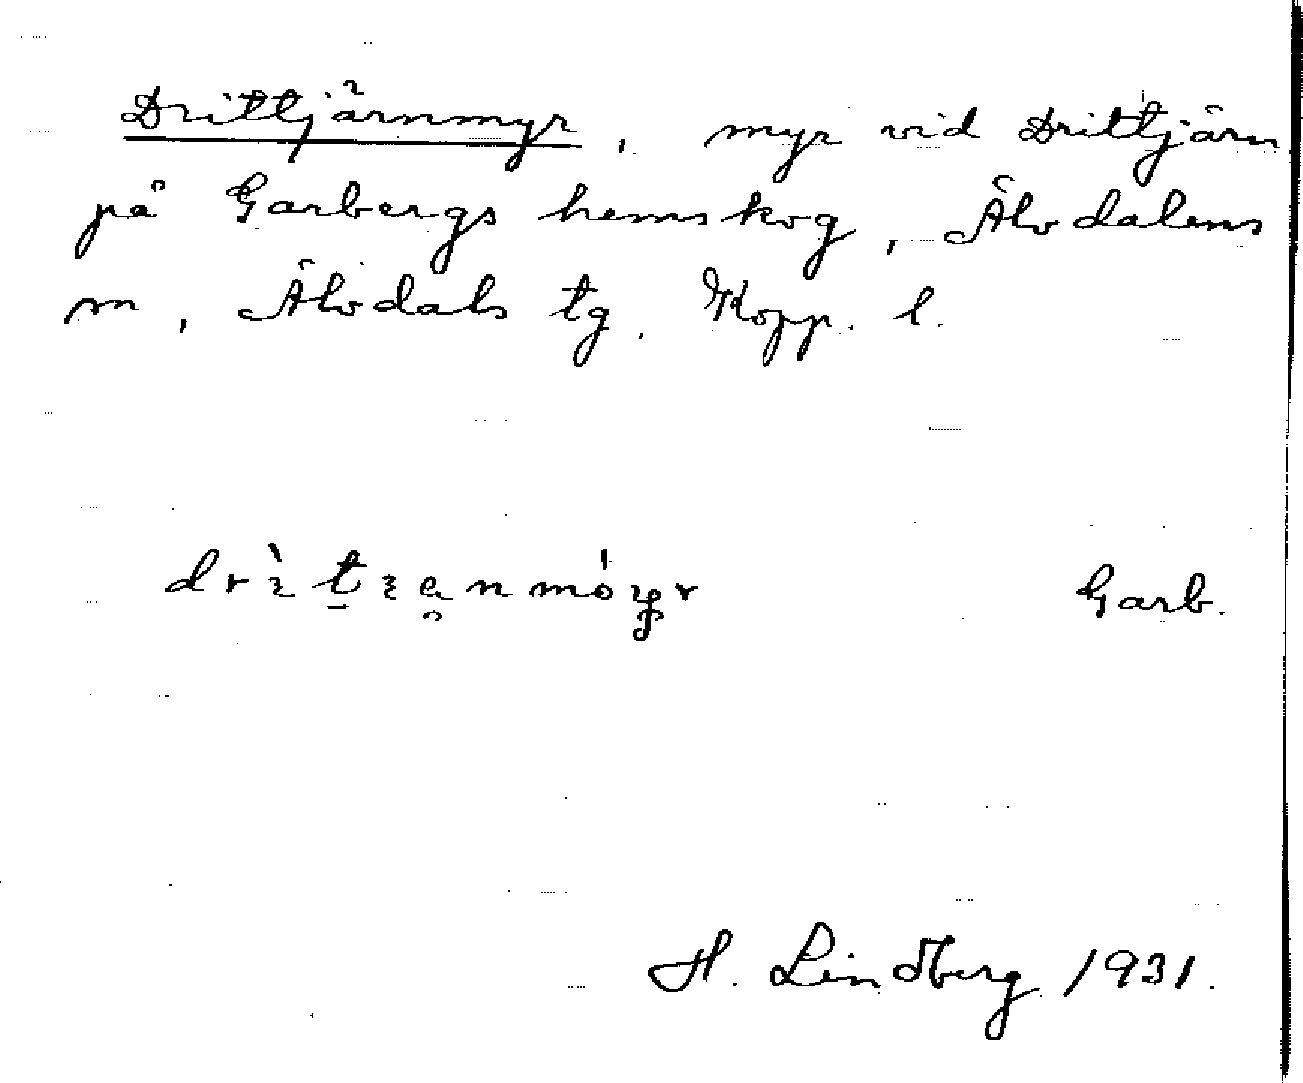 Drittjärnmyr, myr vid Drittjärn
på Garbergs hemskog, Älvdalens
sn, Älvdals tg. Kopp. l.
Garb.
H. Lindberg 1931.